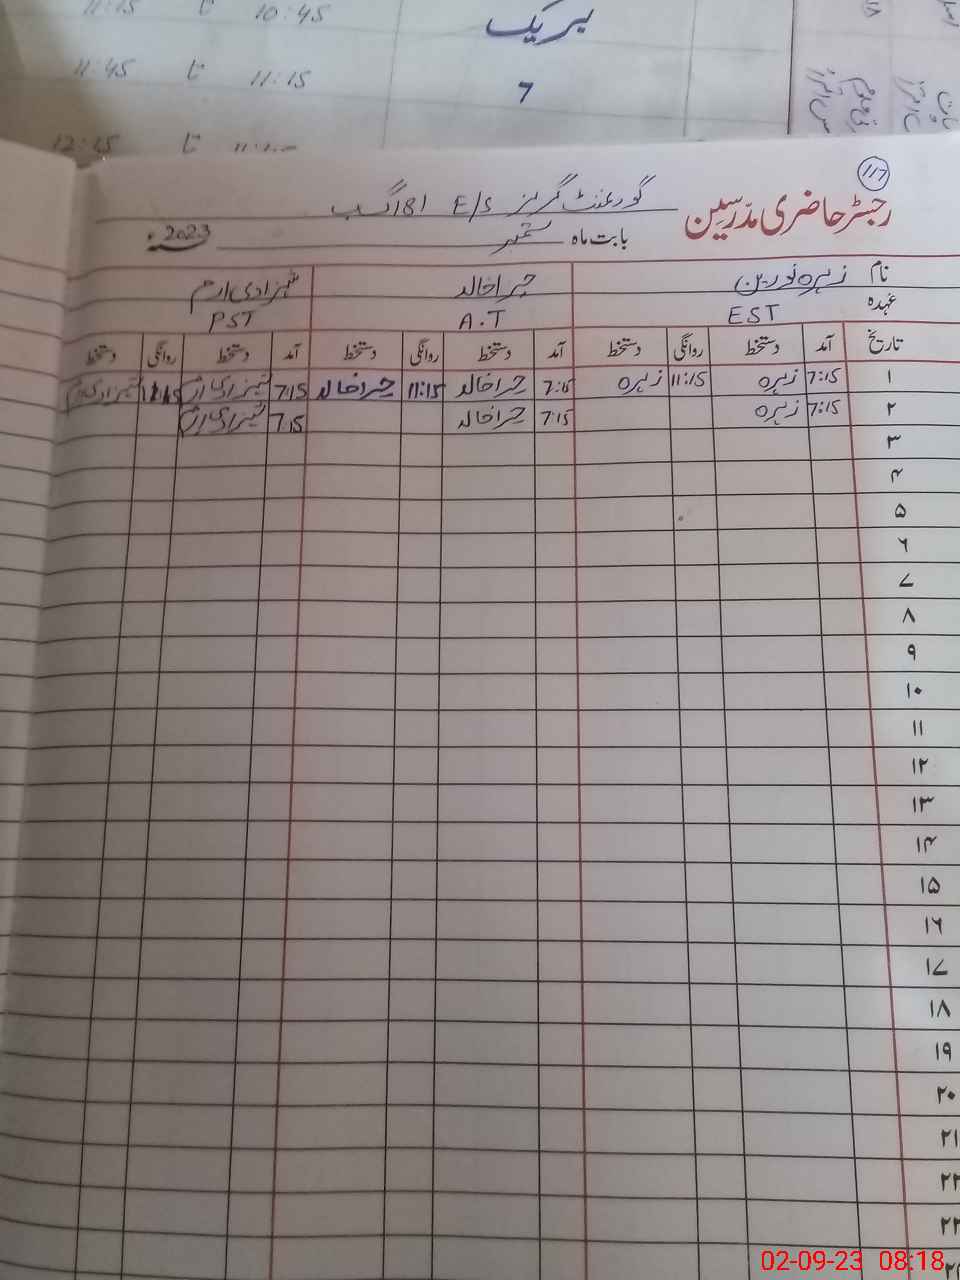 11:15 تا 10:45
بریک
11:45 تا 11:15
7
12:15 تا
117
رجسٹر حاضری مدرسین گورنمنٹ گرلز E/S 181 گ ب
بابت ماہ ستمبر 2023ء
نام زہرہ نورین حرا خالد شہزادی ارم
عہدہ EST A.T PST
تاریخ آمد دستخط روانگی دستخط آمد دستخط روانگی دستخط آمد دستخط روانگی دستخط
۱ 7:15 زہرہ 11:15 زہرہ 7:15 حرا خالد 11:15 حرا خالد 7:15 شہزادی ارم 11:15 شہزادی ارم
۲ 7:15 زہرہ 7:15 حرا خالد 7:15 شہزادی ارم
۳
۴
۵
۶
۷
۸
۹
۱۰
۱۱
۱۲
۱۳
۱۴
۱۵
۱۶
۱۷
۱۸
۱۹
۲۰
۲۱
۲۲
۲۳
02-09-23 08:18